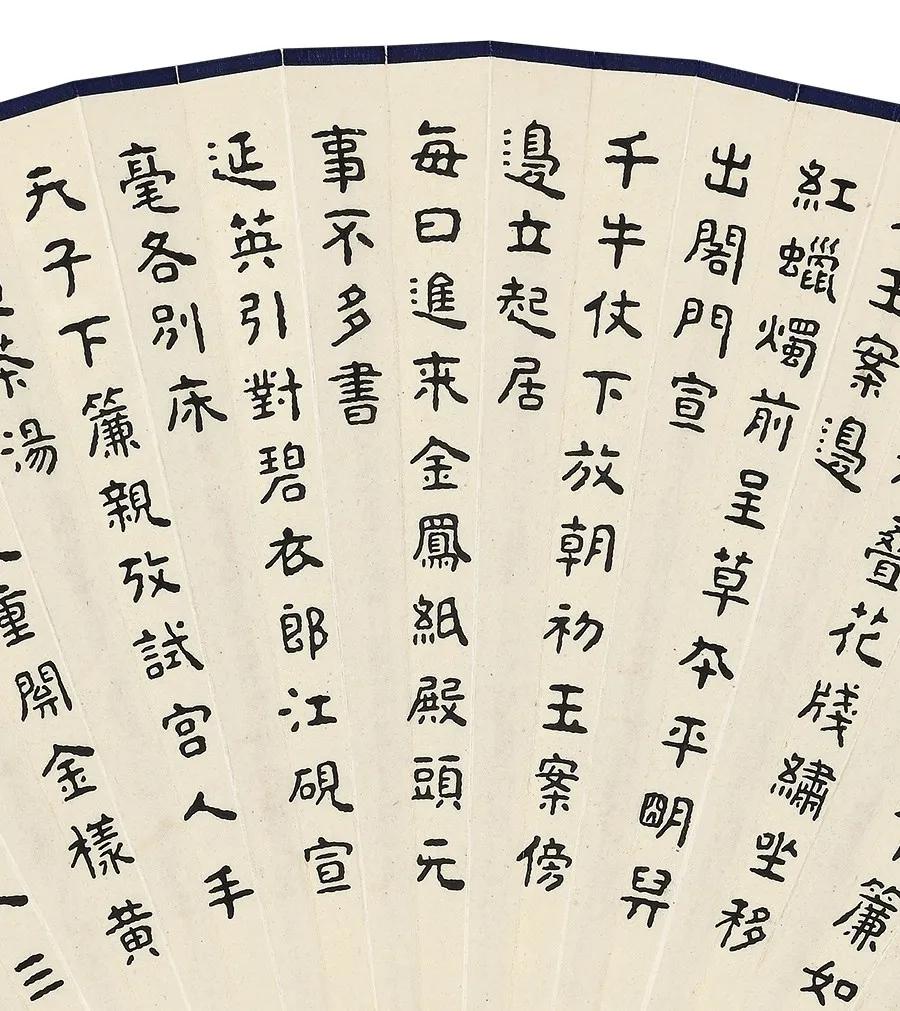 簾如
玉案邊
疊花牋繡坐移
紅蠟燭前呈草本平明舁
出閣門宣
千牛仗下放朝初玉案傍
邊立起居
每日進來金鳳紙殿頭无
事不多書
延英引對碧衣郎江硯宣
毫各別床
天子下簾親攷試宮人手
茶湯
重関金樣黃
三